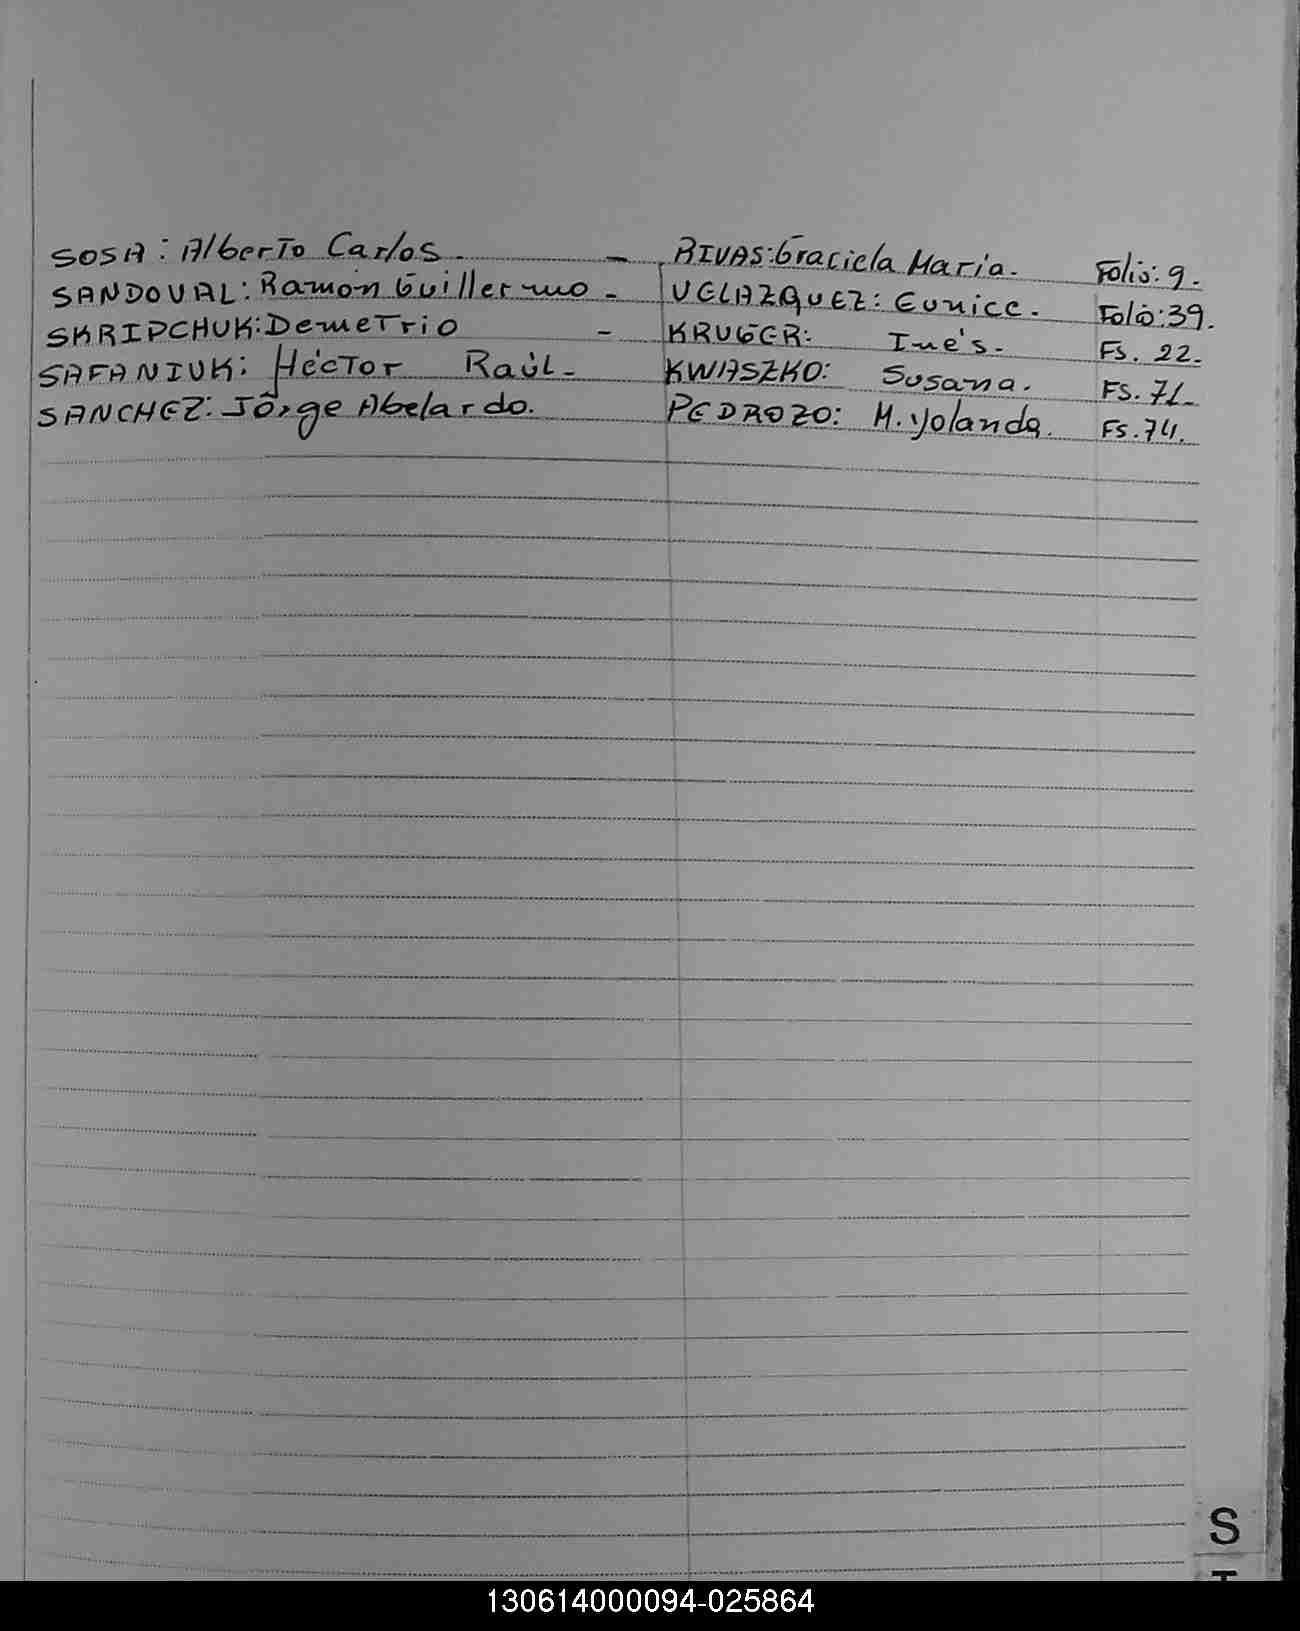 SOSA: Alberto Carlos. - RIVAS: Graciela Maria. Folio: 9.
SANDOVAL: Ramón Guillermo - VELAZQUEZ: Eunice. Folio: 39.
SKRIPCHUK: Demetrio - KRUGER: Inés. Fs. 22.
SAFANIUK: Héctor Raúl - KWASZKO: Susana. Fs. 71.
SANCHEZ: Jorge Abelardo. PEDROZO: M. Yolanda. Fs. 74.
S
130614000094-025864